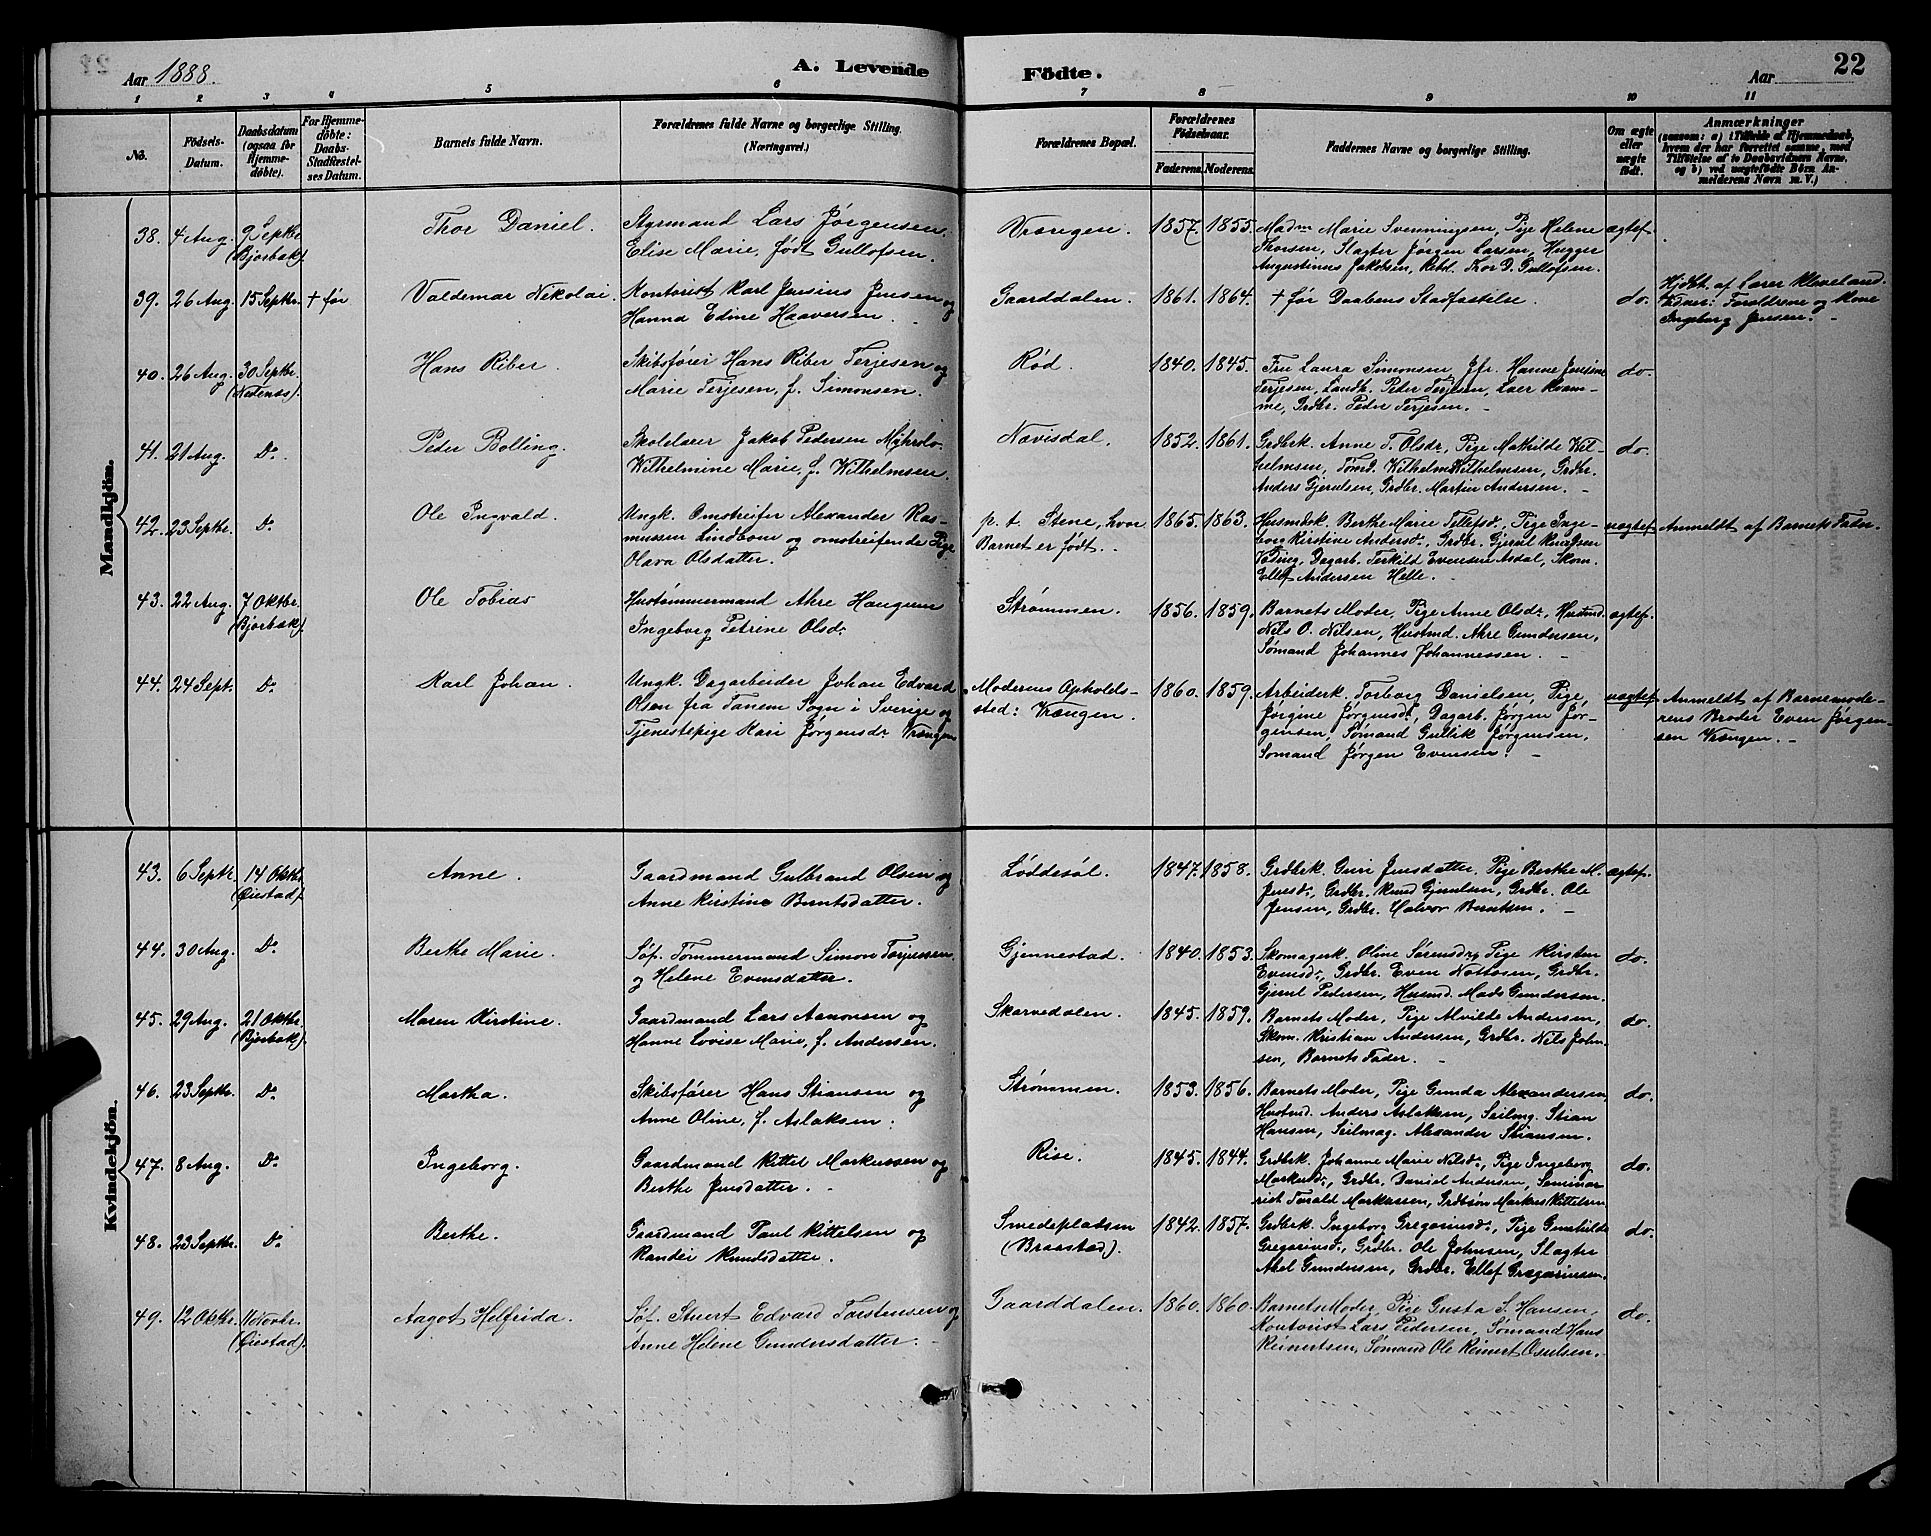 Aar 1888.
A. Levende
Födte.
Aar
22
1 2 3 4 5 6 7 8 9 10 11
No.
Födsels-Datum.
Daabsdatum (ogsaa for Hjemme-döbte).
For Hjemme-döbte: Daabs-Stadfæstel-ses Datum.
Barnets fulde Navn.
Forældrenes fulde Navne og borgerlige Stilling.
(Næringsvei.)
Forældrenes Bopæl.
Forældrenes Födselsaar.
Faderens. Moderens.
Faddernes Navne og borgerlige Stilling.
Om ægte eller uægte födt.
Anmærkninger
(saasom: a) i Tilfælde af Hjemmedaab, hvem der har forrettet samme, med Tilföielse af to Daabsvidners Navne, og b) ved uægtefödte Börn Anmelderens Navn m. V.)
Mandkjön.
38. 4 Aug. 9 Septbr. (Bjorbæk). Thor Daniel. Styrmand Lars Jørgensen
Elise Marie, født Gulløfsen. Vrængen. 1857. 1855. Madm Marie Svenningsen, Pige Helene
Thorsen, Slagter Jørgen Larsen, Hugger
Augustinus Jakobsen, Thor D. Gulløfsen. ægtef.
39. 26 Aug. 15 Septbr. + før Valdemar Nikolai. Kontorist Karl Jensius Jensen og
Hanna Edine Haaversen. Gaarddalen. 1861. 1864. + før Daabens Stadfæstelse. do. Hjdbt. af Lærer Kleveland.
Forældrene og Kone
Ingeborg Jensen.
40. 26 Aug. 30 Septbr. (Nedenæs). Hans Riber. Skibsfører Hans Riber Terjesen og
Marie Terjesen, f. Simonsen. Rød. 1840. 1845. Fru Laura Simonsen, Jfr. Hanne Jensine
Terjesen, Landh. Peder Terjesen, Lær Kvam-
me, Grdbr. Peder Terjesen. do.
41. 21 Aug. Do. Peder Bolling. Skolelærer Jakob Pedersen
Wilhelmine Marie, f. Wilhelmsen. Nævisdal. 1852. 1861. Grdbrk. Anne T. Olsdr., Pige Mathilde Wil-
helmsen, Tømd. Wilhelm Wilhelmsen, Grdbr.
Anders Gjerulsen, Grdbr. Martin Andersen. do.
42. 23 Septbr. Do. Ole Ingvald. Ungk. Omstreifer Alexander Ras-
mussen Lindbom og omstreifende Pige
Olava Olsdatter. p. t. Stene, hvor
Barnet er født. 1865. 1863. Husmdsk. Berthe Marie Tellefsd., Pige Inge-
borg Kirstine Andersd., Grdbr. Gjerul Knudsen
Dagarb. Terkild Evensen Asdal, Skom.
Ellef Andersen Helle. uægtef. Anmeldt af Barnets Fader.
43. 22 Aug. 7 Oktbr. (Bjorbæk). Ole Tobias Hustømmermand Akre Haugum
Ingeborg Petrine Olsdr. Strømmen. 1856. 1859. Barnets Moder, Pige Anne Olsdr., Hustmd.
Nils O. Nilsen, Hustmd. Akre Gundersen,
Sømand Johannes Johannessen. ægtef.
44. 24 Sept. Do. Karl Johan. Ungk. Dagarbeider Johan Edvard
Olsen fra Tanem Sogn i Sverige og
Tjenestepige Kari Jørgensdr. Vrængen Moderens Opholds-
sted: Vrængen. 1860. 1859. Arbeiderk. Torborg Danielsen, Pige
Jørgine Jørgensd., Dagarb. Jørgen Jør-
gensen, Sømand Gullik Jørgensen,
Sømand Jørgen Evensen. uægtef. Anmeldt af Barnemode-
rens Broder Even Jørgen-
sen Vrængen.
Kvindekjön.
43. 6 Septr. 14 Oktbr. (Øiestad). Anne. Gaardmand Gulbrand Olsen og
Anne Kirstine Berntsdatter. Løddesøl. 1847. 1858. Grdbrk. Guri Jensdatter. Pige Berthe M.
Jensd., Grdbr. Knud Gjerulsen, Grdbr. Ole
Jensen, Grdbr. Halvor Berntsen. ægtef.
44. 30 Aug. Do. Berthe Marie. Søf. Tømmermand Simon Terjessen
og Helene Evensdatter. Gjennestad. 1840. 1853. Skomagerk. Oline Sørensdr., Pige Kirsten
Evensd., Grdbr. Even Nottosen, Grdbr.
Gjerul Pedersen, Husmd. Mads Gundersen. do.
45. 29 Aug. 21 Oktbr. (Bjorbæk). Maren Kirstine. Gaardmand Lars Aanonsen og
Hanne Lovise Marie, f. Andersen. Skarvedalen. 1845. 1859. Barnets Moder, Pige Alvilde Andersen,
Skom. Kristian Andersen, Grdbr. Nils John-
sen, Barnets Fader. do.
46. 23 Septbr. Do. Martha. Skibsfører Hans Stiansen og
Anne Oline, f. Aslaksen. Strømmen. 1853. 1856. Barnets Moder, Pige Gunda Alexandersen
Hustmd. Anders Aslaksen, Seilmg. Stian
Hansen, Seilmag. Alexander Stiansen. do.
47. 8 Aug. Do. Ingeborg. Gaardmand Kittel Markussen og
Berthe Jensdatter. Rise. 1845. 1844. Grdbrk. Johanne Marie Nilsd., Pige Ingeborg
Markusd., Grdbr. Daniel Andersen, Seminar-
rist Torald Markussen, Grdbsøn Markus Kittelsen do.
48. 23 Septbr. Do. Berthe. Gaardmand Paul Kittelsen og
Randei Knudsdatter. Smedepladsen
(Braastad). 1842. 1857. Grdbrk. Ingeborg Gregoriusd., Pige Gunhilde
Gregoriusd., Grdbr. Ole Johnsen, Slagter
Axel Gundersen, Grdbr. Ellef Gregoriusen. do.
49. 12 Oktbr. 11 Novbr. (Øiestad). Aagot Helfrida. Søf. Stuert Edvard Torstensen og
Anne Helene Gundersdatter. Gaarddalen. 1860. 1860. Barnets Moder, Pige Gusta S. Hansen,
Kontorist Lars Pedersen, Sømand Hans
Reinertsen, Sømand Ole Reinert Osulsen. do.